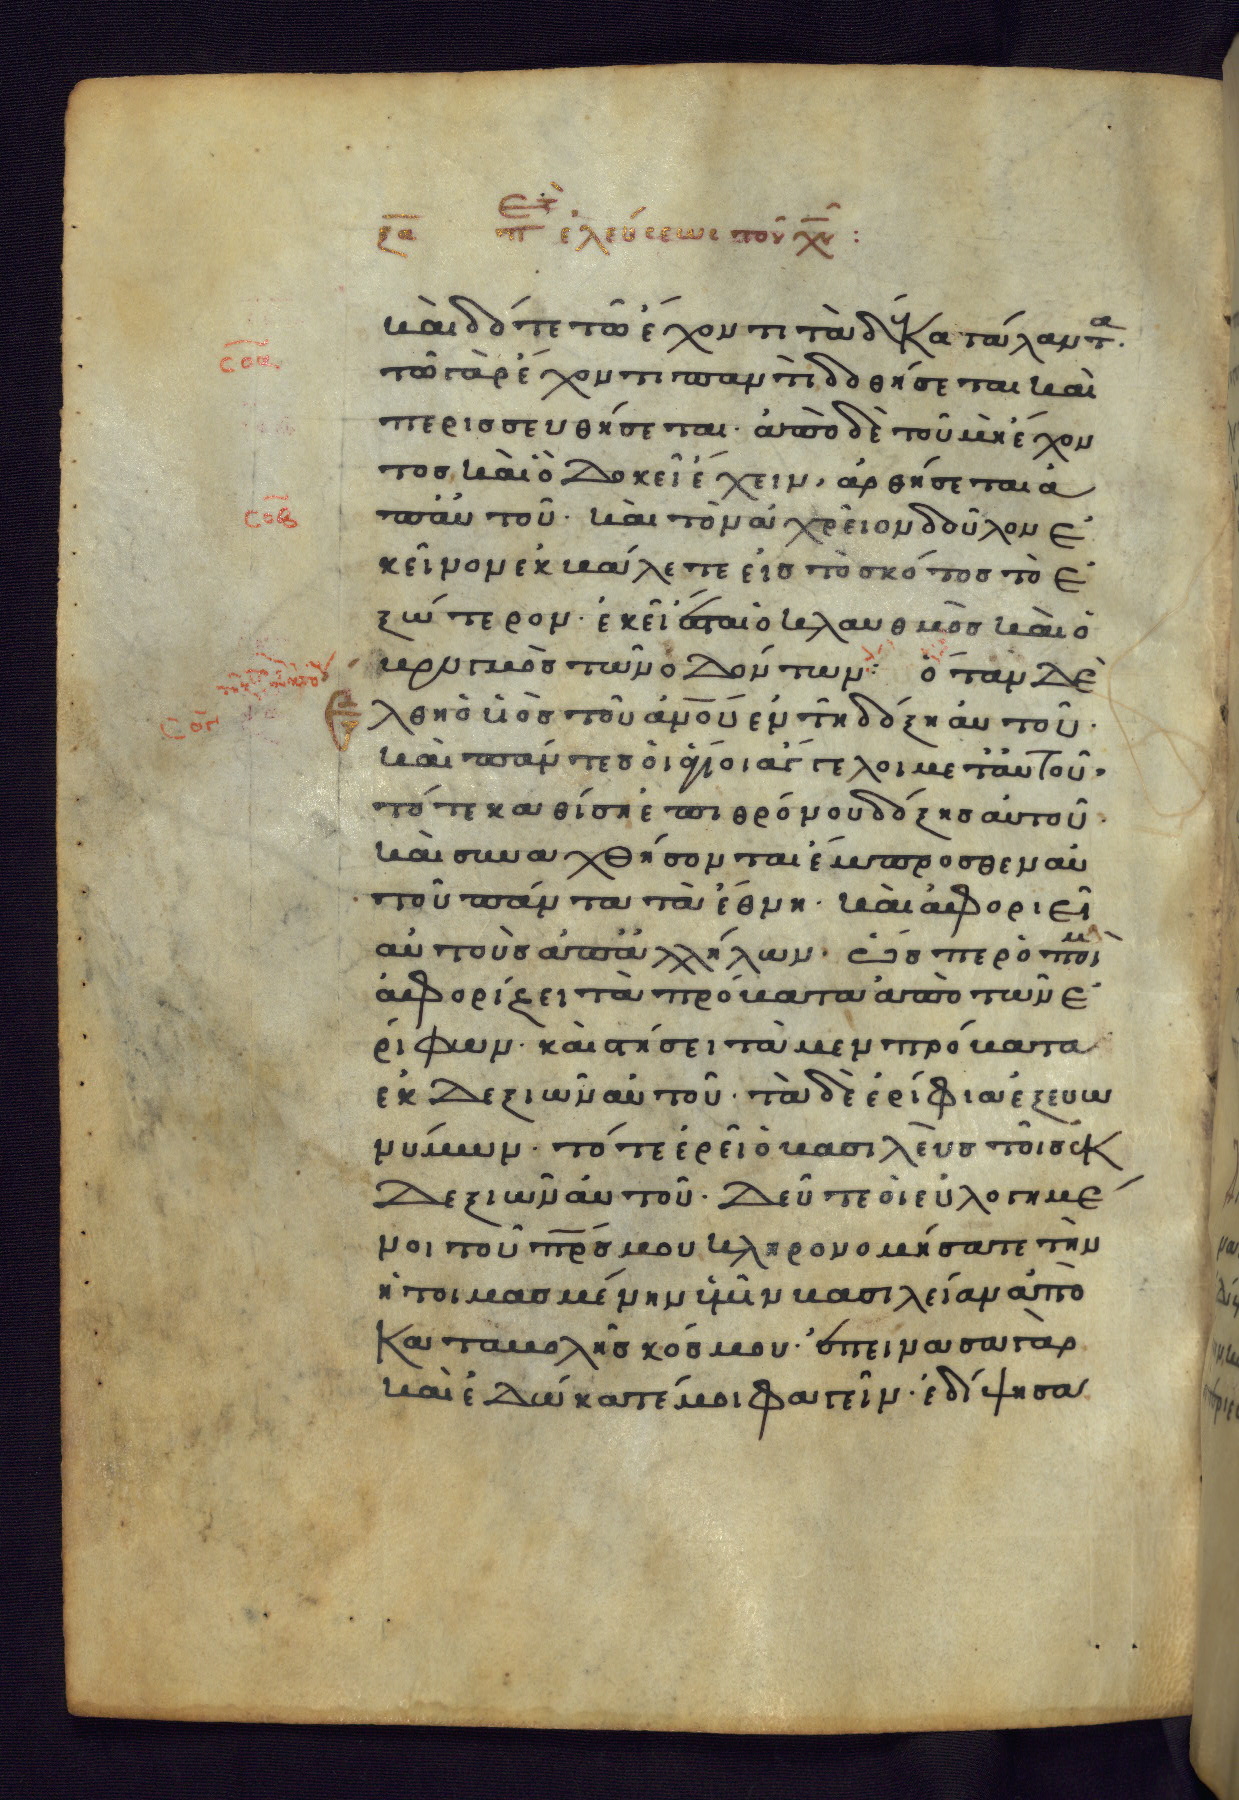 ξα περὶ ἐλεύσεως τοῦ χυ :
καὶ δότε τῶ ἔχοντι τὰ δέκα τάλαντα.
σοα
τῶ γὰρ ἔχοντι παντὶ δοθήσεται καὶ
περισσευθήσεται· ἀπὸ δὲ τοῦ μὴ ἔχον
τος καὶ ὃ δοκεῖ ἔχειν, ἀρθήσεται ἀ
σοβ
π' αὐτοῦ· καὶ τὸν ἀχρεῖον δοῦλον ἐ
κεῖνον ἐκβάλετε εἰς τὸ σκότος τὸ ἐ
ξώτερον· ἐκεῖ ἔσται ὁ κλαυθμὸς καὶ ὁ
βρυγμὸς τῶν ὀδόντων: ὅταν δὲ ἔ
σογ
λθη ὁ υἱὸς τοῦ ἀνου ἐν τῆ δόξη αὐτοῦ·
καὶ πάντες οἱ ἅγιοι ἄγγελοι μετ' αὐτοῦ·
τότε καθίση ἐπὶ θρόνου δόξης αὐτοῦ·
καὶ συναχθήσονται ἔμπροσθεν αὐ
τοῦ πάντα τὰ ἔθνη· καὶ ἀφοριεῖ
αὐτοὺς ἀπ' ἀλλήλων· ὥσπερ ὁ ποιμὴν
ἀφορίζει τὰ πρόβατα ἀπὸ τῶν ἐ
ρίφων· καὶ στήσει τὰ μεν πρόβατα
ἐκ δεξιῶν αὐτοῦ· τὰ δὲ ἐρίφια ἐξ εὐω
νύμων· τότε ἐρεῖ ὁ βασιλεὺς τοῖς ἐκ
δεξιῶν αὐτοῦ· Δεῦτε οἱ εὐλογημέ
νοι τοῦ πρς μου κληρονομήσατε τὴν
ἡτοιμασμένην ὑμῖν βασιλείαν ἀπὸ
καταβολῆς κόσμου· ἐπείνασα γὰρ
καὶ ἐδώκατέ μοι φαγεῖν· ἐδίψησα